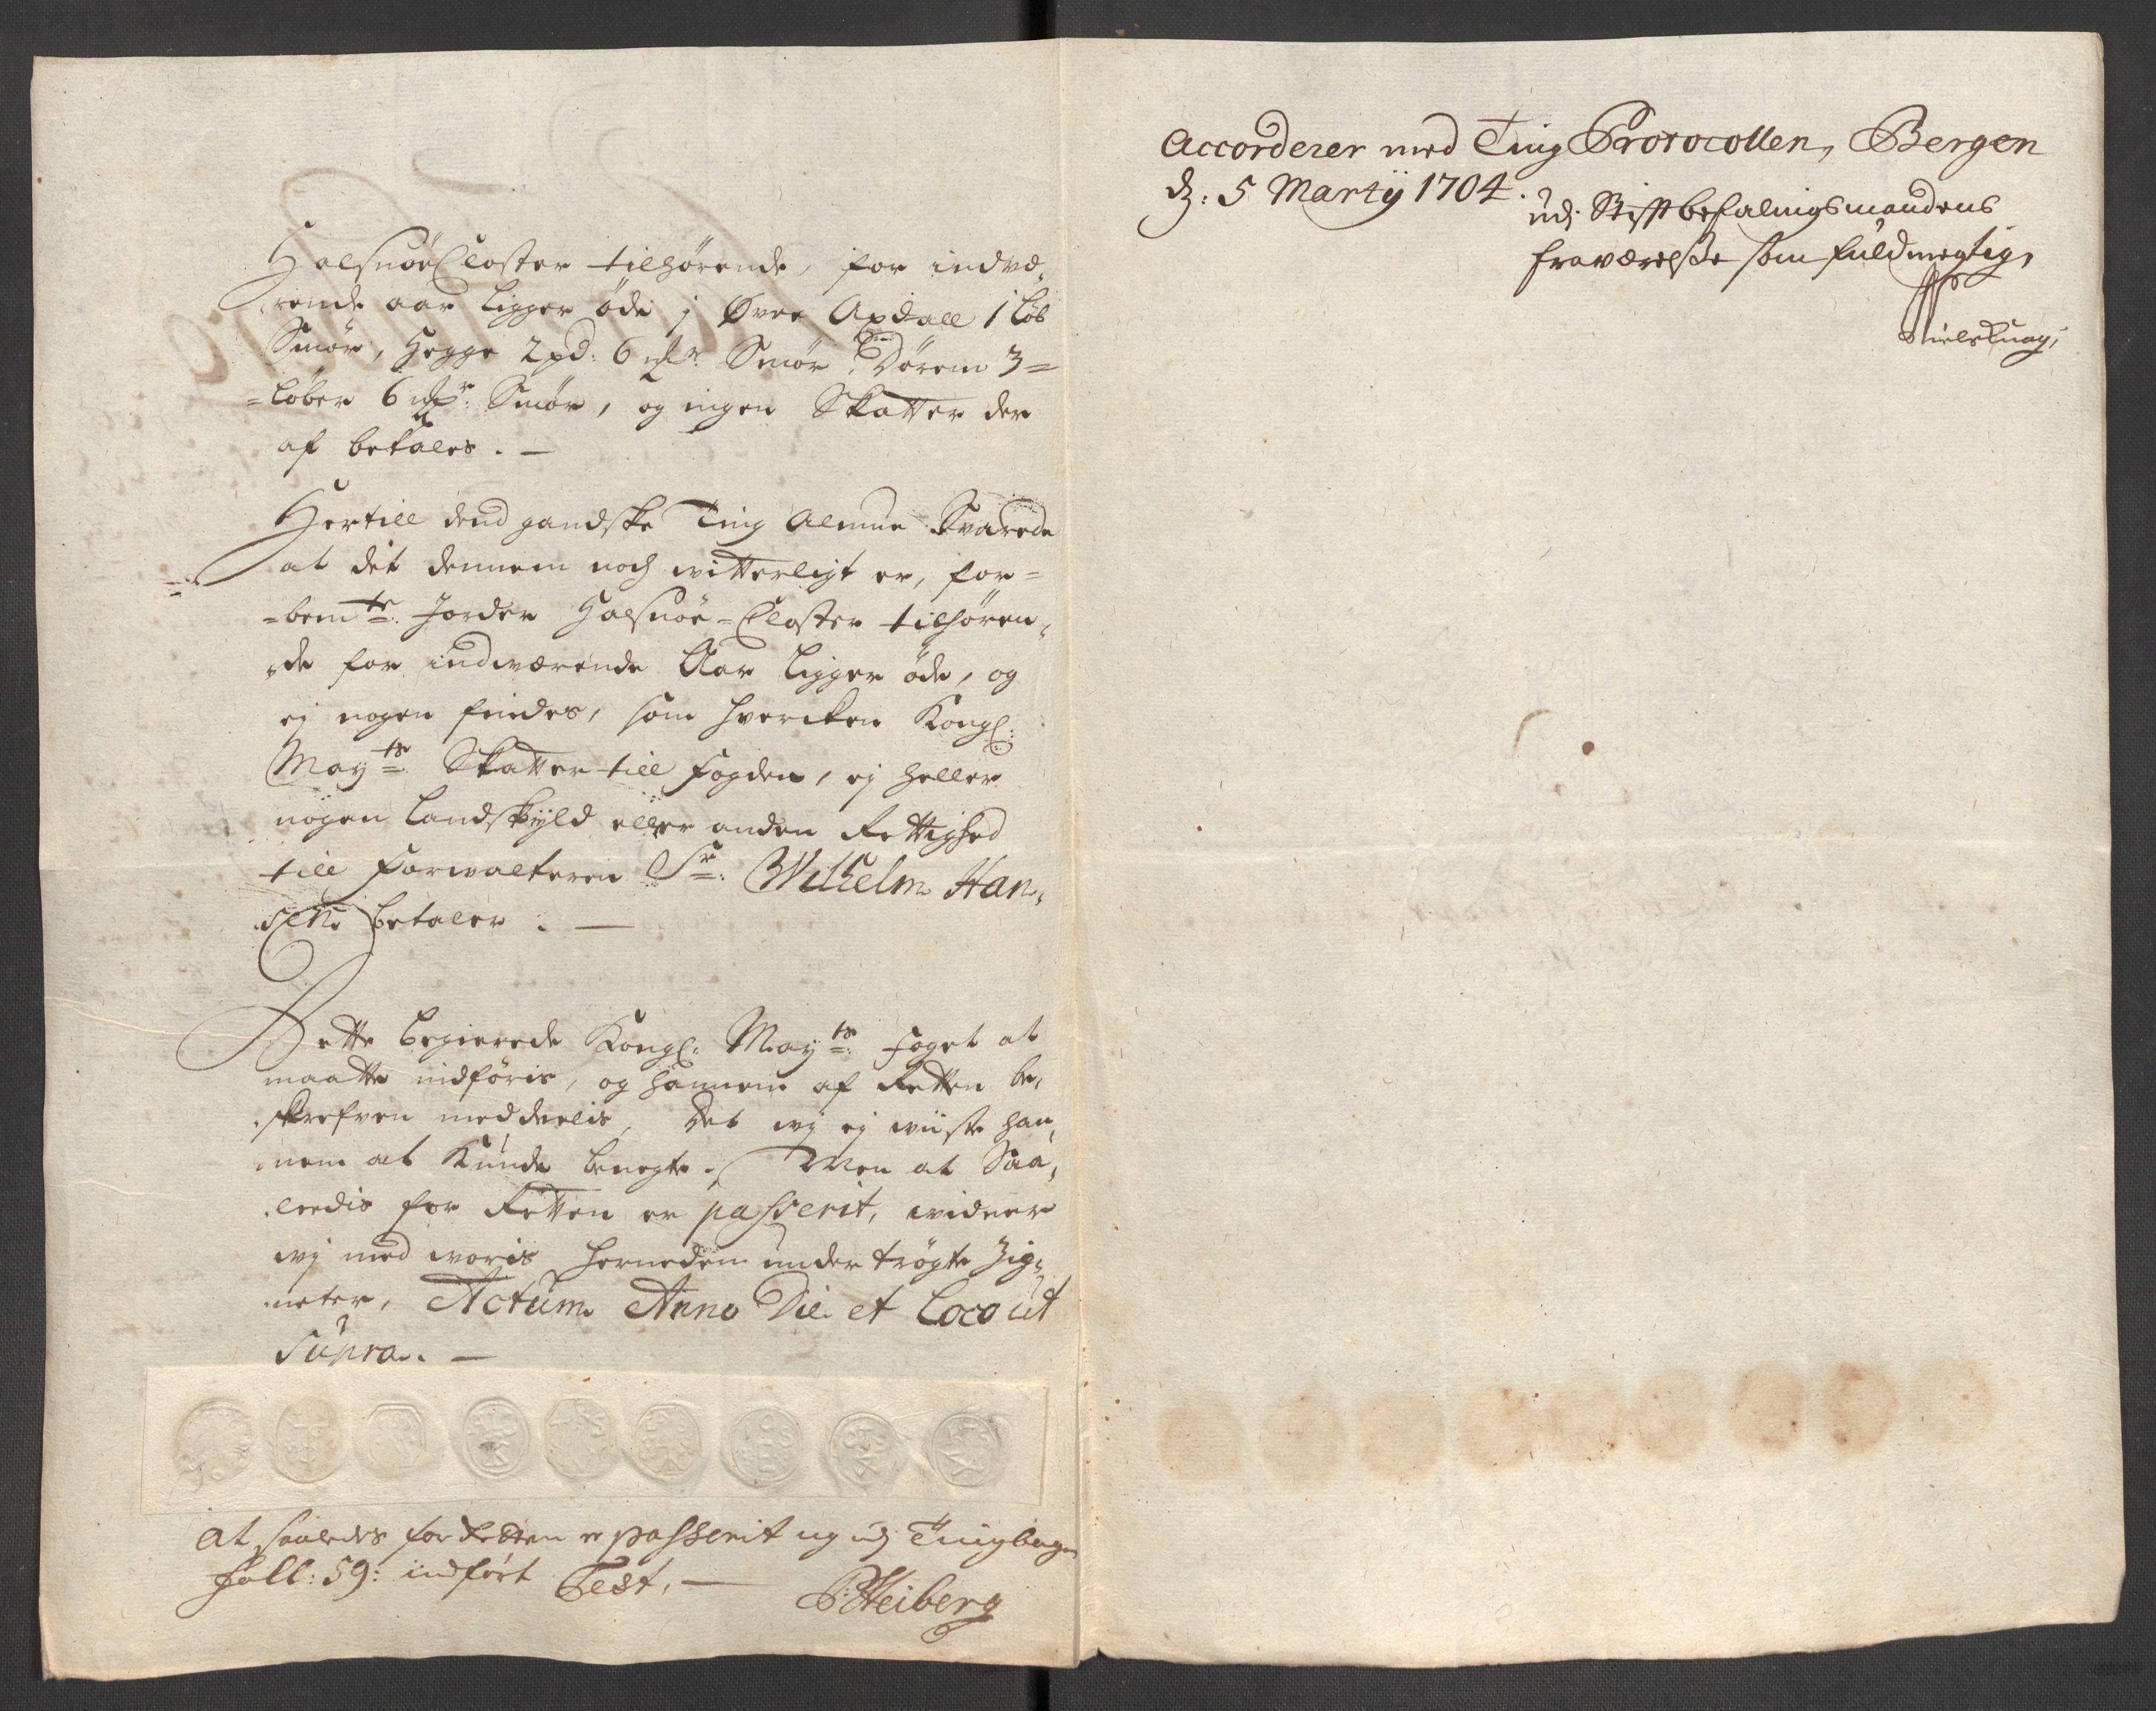 HalsnøeCloster tilhørende, for indvæ,
,rende aar ligger øde j Øvre Axdall 1 løb
Smør, Hegge 2 pd: 6 mkr: Smør, Dørem 3=
=løber 6 mkr: Smør, og ingen Skatter der
af betales. —
Hertill dend gandske Ting Almue Svarede
at det dennem noch witterligt er, for=
=bemte: Jorder Halsnøe=Closter tilhøren,
,de for indwærende Aar ligger øde, og
ej nogen findes, som hvercken Kongl:
Mayts: Skatter till fogden, ej heller
nogen Landskyld eller anden Rettighed
till forwalteren Sr: Wilhelm Han,
,sen betaler. —
Dette begierede Kongl: Mayts: foget at
maatte indføris, og hannem af Retten be,
,skrefven meddeelis, det wj ej wiste han,
,nem at Kunde benegte. Men at Saa,
,leedis for Retten er passerit, widner
wj med woris hernedenunder trøgte Zig,
,neter, Actum Anno Die et Loco ut
supra. —
At saaledes for Retten er passerit og udj Tingbogen
foll: 59: indført Test, —
P: Heiberg
Accorderer med Ting Protocollen, Bergen
d: 5 Martij 1704.
udj Stiftbefalingsmandens
fraværelsse som fuldmegtig,
Niels Knag,